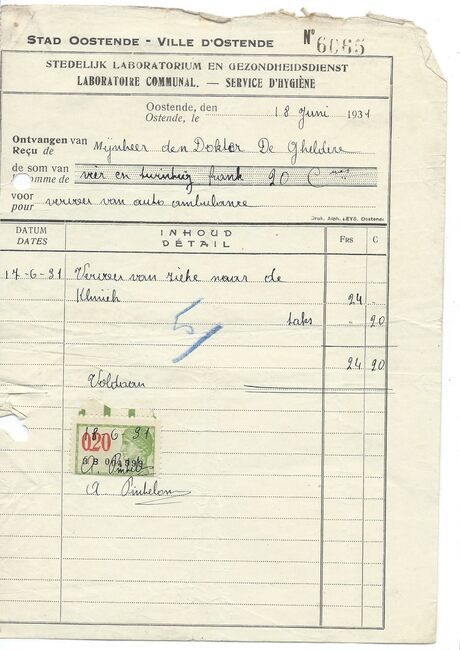 STAD OOSTENDE - VILLE D'OSTENDE
N° 6065
STEDELIJK LABORATORIUM EN GEZONDHEIDSDIENST
LABORATOIRE COMMUNAL. — SERVICE D'HYGIÈNE
Oostende, den
Ostende, le 18 Juni 1931
Ontvangen van
Reçu de Mynheer den Doktor De Gheldere
de som van
somme de vier en twintig frank 20 Cmes
voor
pour vervoer van auto ambulance
Druk. Alph. LEYS, Oostende
DATUM
DATES
INHOUD
DÉTAIL
FRS C
17-6-31 Vervoer van zieke naar de
Kliniek 24 "
taks " 20
24 20
Voldaan
18 6 31
0,20
A. Pintelon